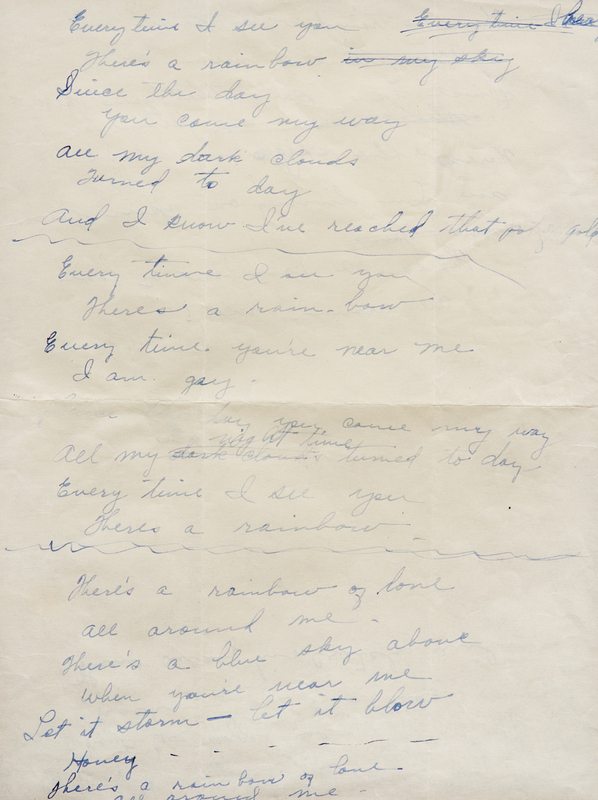 Everytime I see you Everytime I hear
There's a rainbow in my sky
Since the day
you came my way
All my dark clouds
Turned to day
And I know I've reached that po gold
Every time I see you
There's a rain-bow
Every time you're near me
I am gay.
day you came my way
night time
All my dark clouds turned to day
Every time I see you
There's a rainbow
There's a rainbow of love
all around me -
There's a blue sky above
When you're near me
Let it storm — let it blow
Honey - - - - - - -
There's a rainbow of love
all around me -